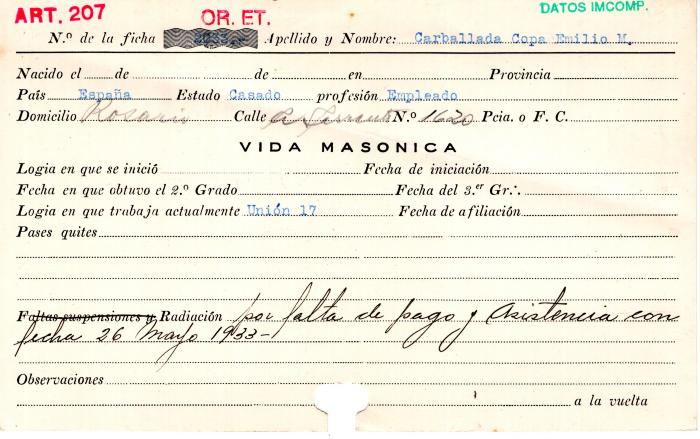 ART. 207 OR. ET. DATOS IMCOMP.
N.º de la ficha Apellido y Nombre: Carballada Copa Emilio M.
Nacido el de de en Provincia
País España Estado Casado profesión Empleado
Domicilio Rosario Calle N.º 1620 Pcia. o F. C.
VIDA MASONICA
Logia en que se inició Fecha de iniciación
Fecha en que obtuvo el 2.º Grado Fecha del 3.er Gr∴
Logia en que trabaja actualmente Unión 17 Fecha de afiliación
Pases quites
Faltas suspensiones y Radiación por falta de pago y Asistencia con
fecha 26 Mayo 1933-
Observaciones
a la vuelta